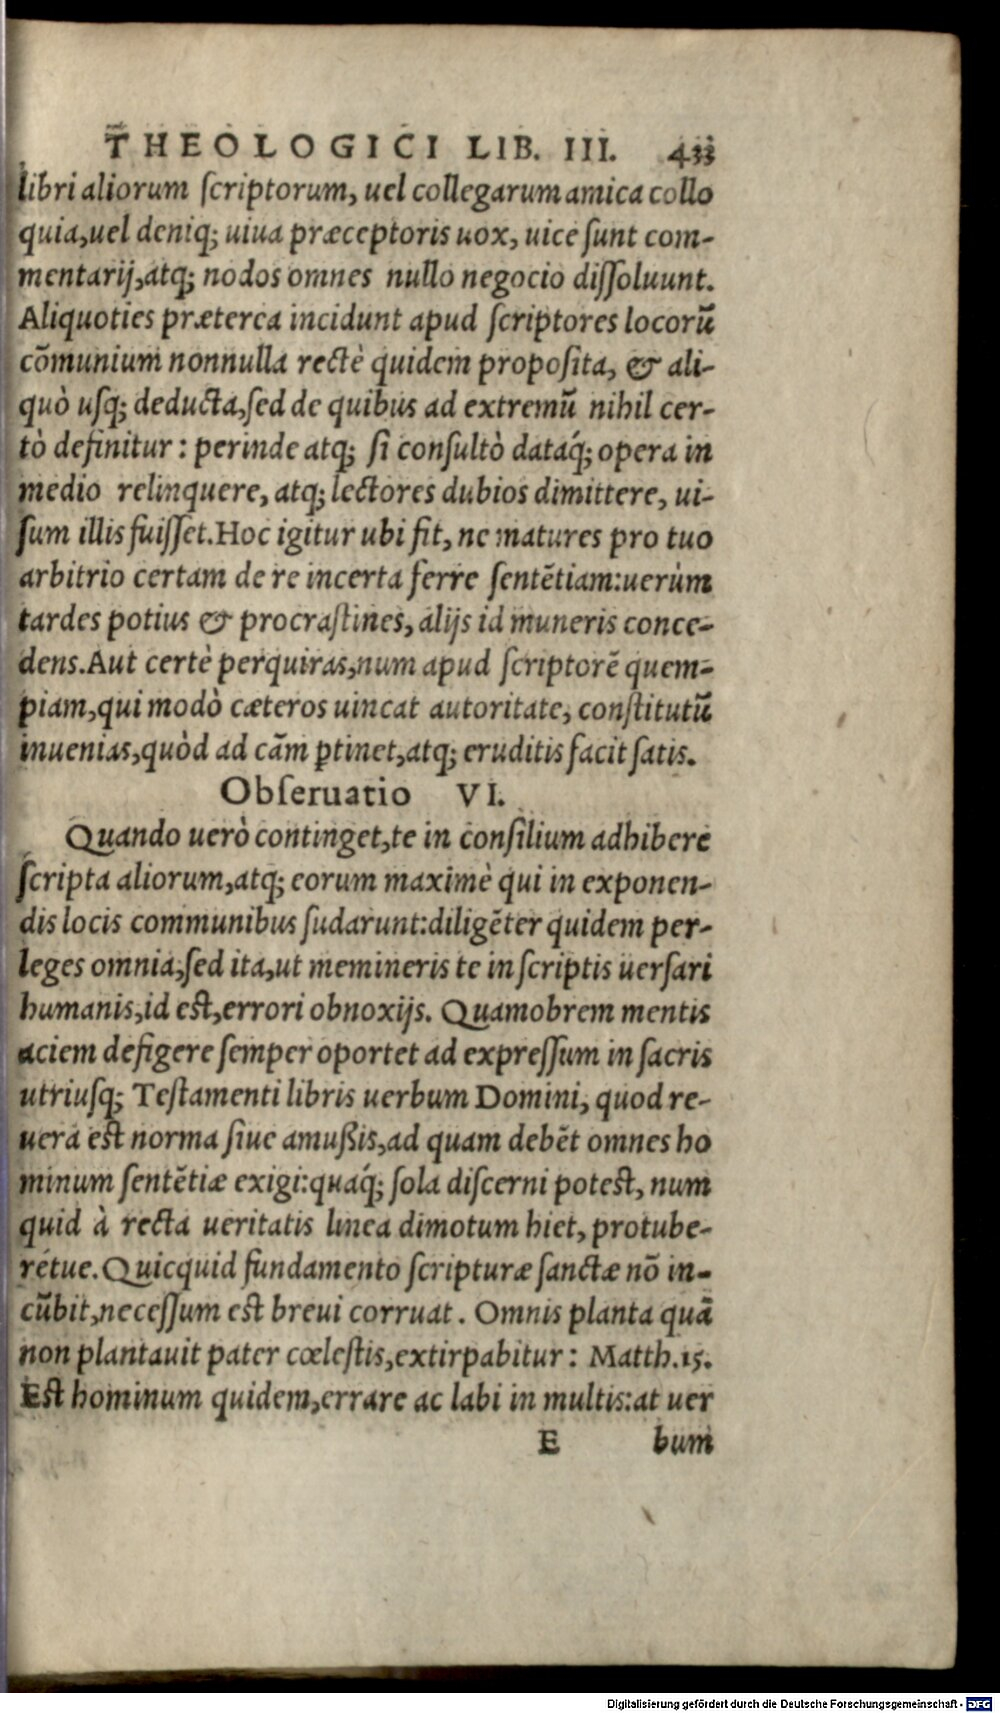 THEOLOGICI LIB. III. 433
libri aliorum ſcriptorum, uel collegarum amica collo
quia,uel deniq; uiua præceptoris uox, uice ſunt com-
mentarij,atq; nodos omnes nullo negocio diſſoluunt.
Aliquoties præterea incidunt apud ſcriptores locorũ
cõmunium nonnulla rectè quidem propoſita, & ali-
quò uſq; deducta,ſed de quibus ad extremũ nihil cer-
tò definitur: perinde atq; ſi conſultò dataq́; opera in
medio relinquere, atq; lectores dubios dimittere, ui-
ſum illis fuiſſet. Hoc igitur ubi fit, ne matures pro tuo
arbitrio certam de re incerta ferre ſentẽtiam:uerùm
tardes potius & procraſtines, alijs id muneris conce-
dens. Aut certè perquiras,num apud ſcriptorẽ quem-
piam,qui modò cæteros uincat autoritate, conſtitutũ
inuenias,quòd ad cãm ꝑtinet,atq; eruditis facit ſatis.
Obſeruatio VI.
Quando uerò continget,te in conſilium adhibere
ſcripta aliorum,atq; eorum maximè qui in exponen-
dis locis communibus ſudarunt:diligẽter quidem per-
leges omnia,ſed ita,ut memineris te in ſcriptis uerſari
humanis,id eſt,errori obnoxijs. Quamobrem mentis
aciem defigere ſemper oportet ad expreſſum in ſacris
utriuſq; Teſtamenti libris uerbum Domini, quod re-
uera eſt norma ſiue amußis,ad quam debẽt omnes ho
minum ſentẽtiæ exigi:quaq́; ſola diſcerni poteſt, num
quid à recta ueritatis linea dimotum hiet, protube-
rétue. Quicquid fundamento ſcripturæ ſanctæ nõ in-
cũbit,neceſſum eſt breui corruat. Omnis planta quã
non plantauit pater cœleſtis,extirpabitur: Matth.15.
Eſt hominum quidem,errare ac labi in multis:at uer
E bum
Digitalisierung gefördert durch die Deutsche Forschungsgemeinschaft - DFG